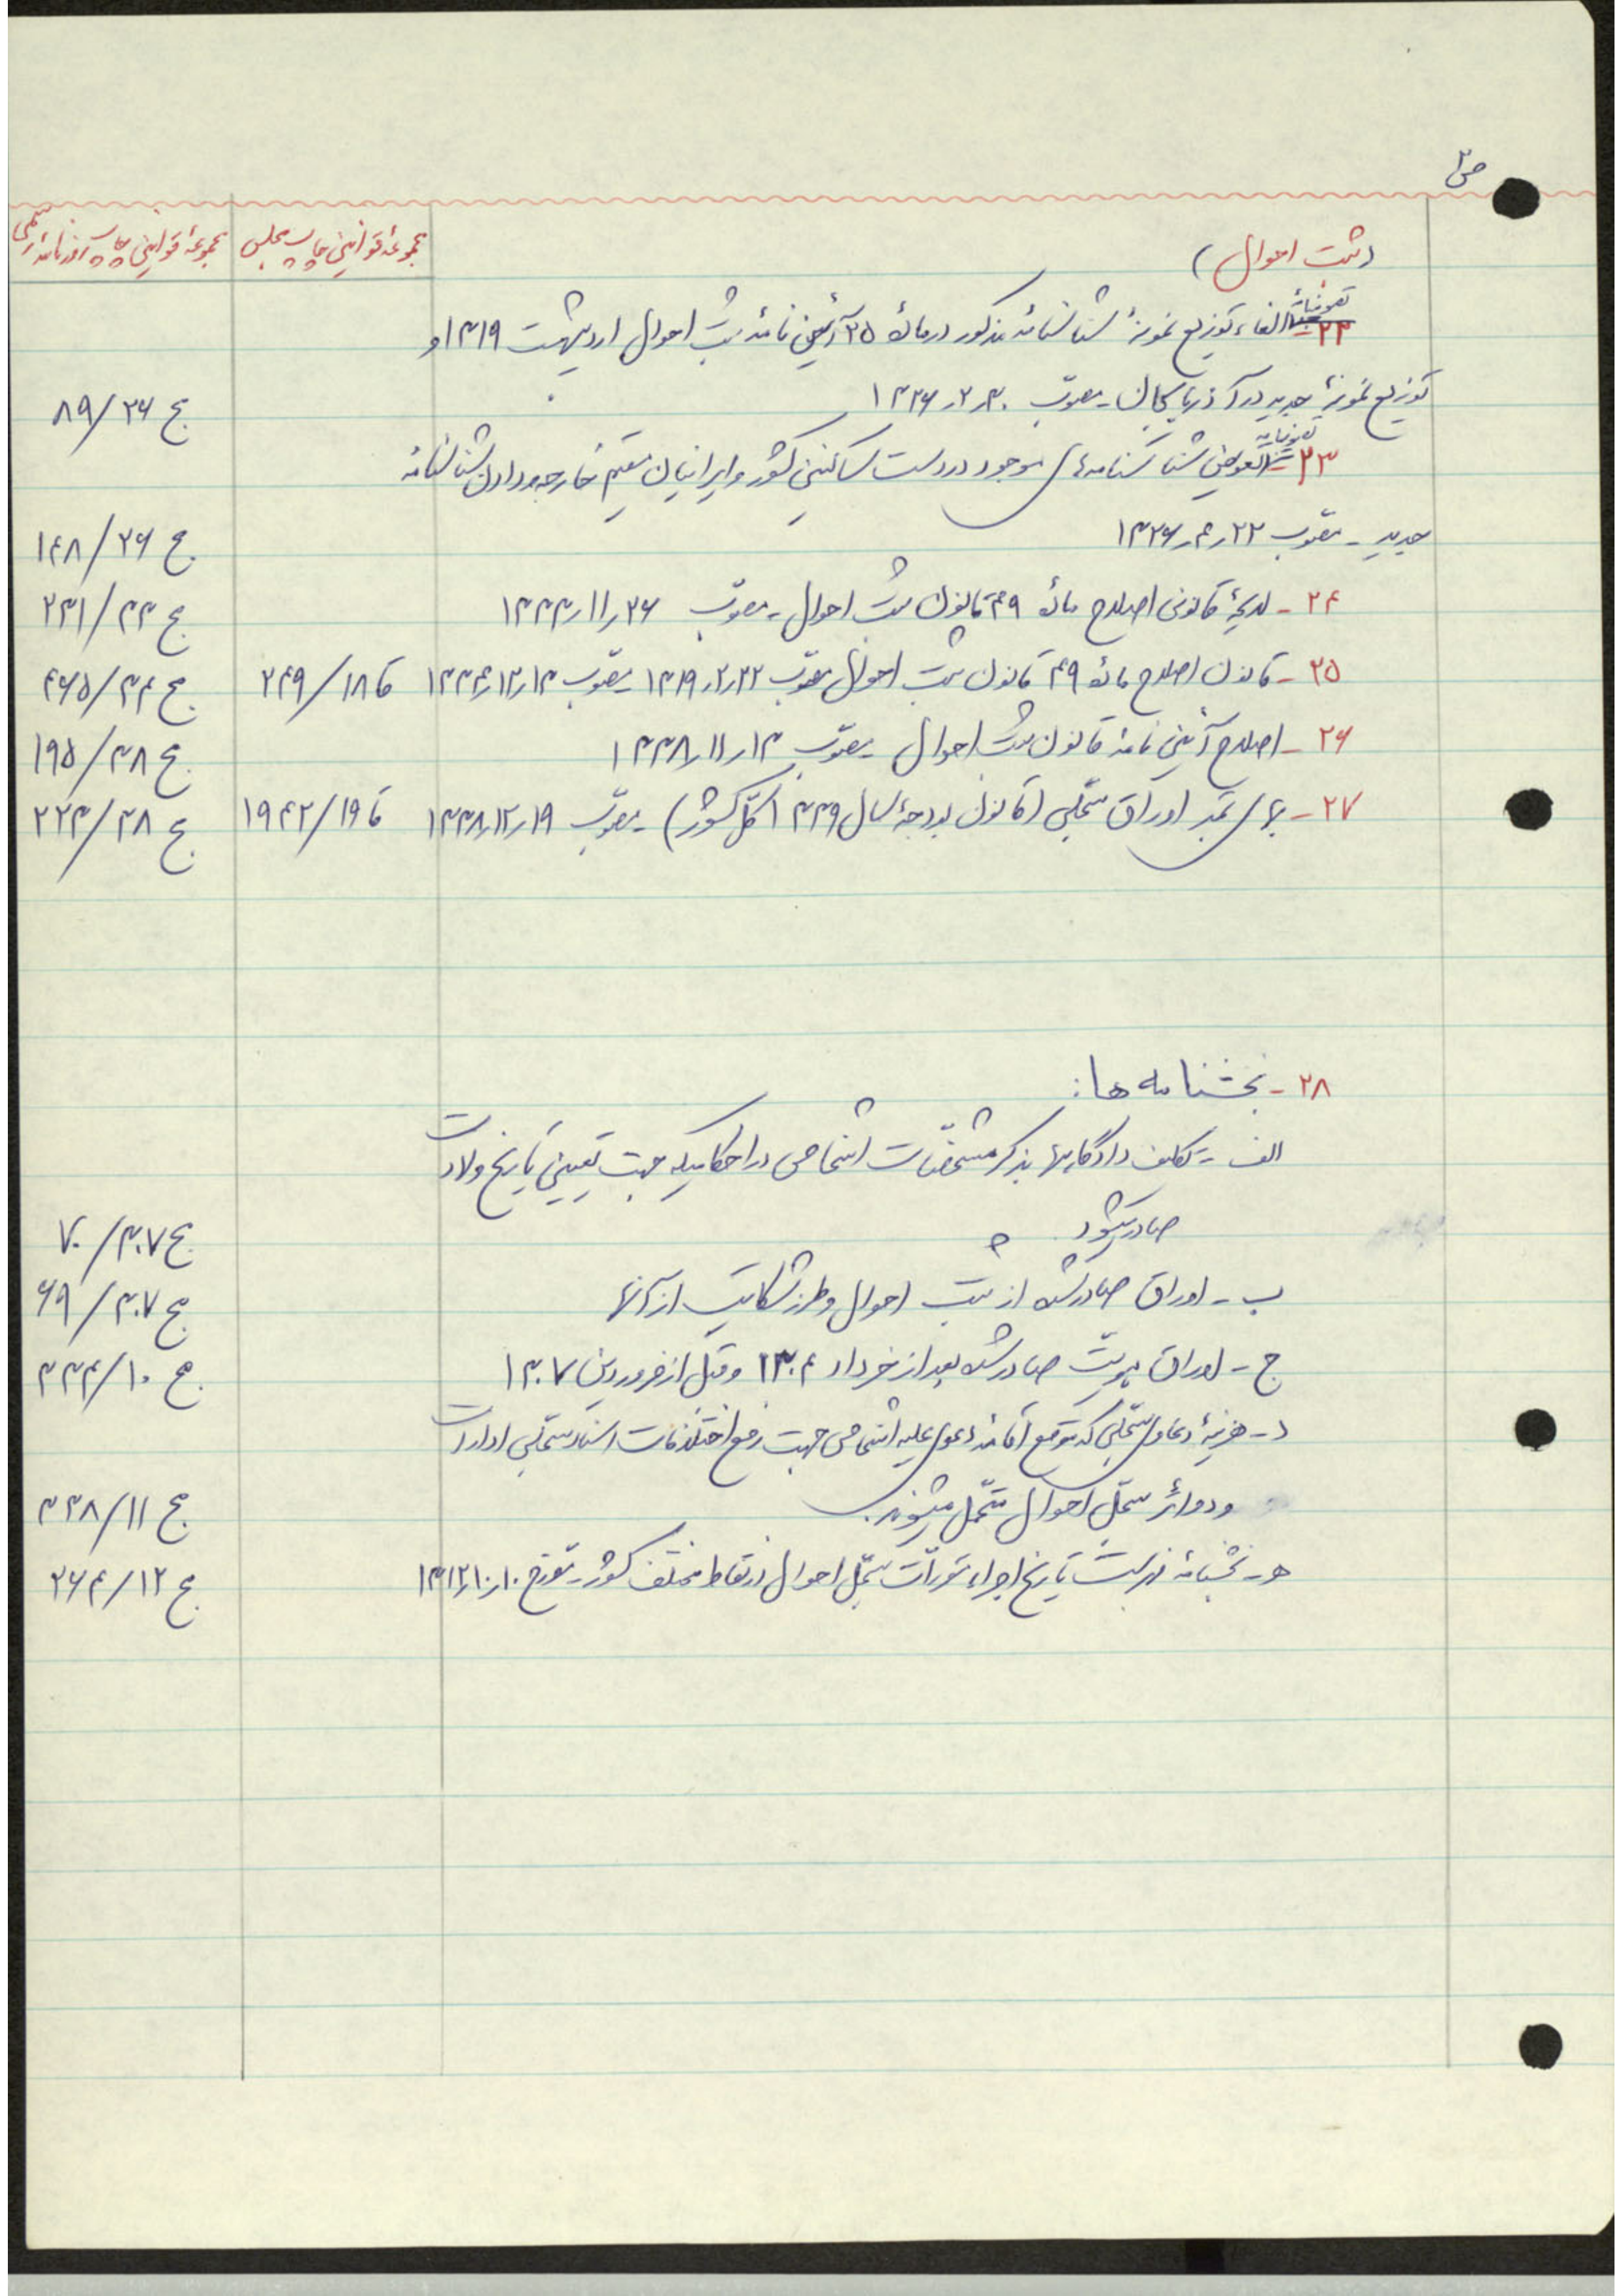 ص ۳
(ثبت احوال)
مجموعهٔ قوانین چاپ مجلس
مجموعهٔ قوانین چاپ روزنامهٔ رسمی
تصویبنامهٔ
۲۲- الغاء توزیع نمونهٔ شناسنامهٔ مذکور در مادهٔ ۳۵ آئین نامهٔ ثبت احوال اردیبهشت ۱۳۱۹ و
توزیع نمونهٔ جدید در آذربایجان - مصوّب ۳۰ر۲ر۱۳۲۶ ج ۲۶/۸۹
تصویبنامه
۲۳- تعویض شناسنامه‌های موجود در دست ساکنین کشور و ایرانیان مقیم خارجه و دادن شناسنامهٔ
جدید - مصوّب ۲۲ر۴ر۱۳۲۶ ج ۲۶/۱۴۸
۲۴- لایحهٔ قانونی اصلاح مادهٔ ۴۹ قانون ثبت احوال - مصوّب ۲۶ر۱۱ر۱۳۳۳ ج ۳۳/۲۳۱
۲۵- قانون اصلاح مادهٔ ۴۹ قانون ثبت احوال مصوّب ۲۲ر۲ر۱۳۱۹ - مصوّب ۱۳ر۱۲ر۱۳۳۴ قا ۱۸/۲۴۹ ج ۳۴/۴۶۵
۲۶- اصلاح آئین نامهٔ قانون ثبت احوال - مصوّب ۱۳ر۱۱ر۱۳۳۸ ج ۳۸/۱۹۵
۲۷- بهای تمبر اوراق سجلّی (قانون بودجهٔ سال ۱۳۳۹ کلّ کشور) - مصوّب ۱۹ر۱۲ر۱۳۳۸ قا ۱۹/۱۹۴۲ ج ۳۸/۲۲۳
۲۸- بخشنامه ها:
الف - تکلیف دادگاهها بذکر مشخصّات اشخاص در احکامیکه جهت تعیین تاریخ ولادت
صادر میشود ج ۳۰۷/۷۰
ب - اوراق صادرشده از ثبت احوال و طرز شکایت از آنها ج ۳۰۷/۶۹
ج - اوراق هویّت صادرشده بعد از خرداد ۱۳۰۴ و قبل از فروردین ۱۳۰۷ ج ۱۰/۳۳۴
د - هزینهٔ دعاوی سجلّی که بتوقع اقامهٔ دعوی علیه اشخاص جهت رفع اختلافات اسناد سجلّی ادارات
و دوائر سجلّ احوال متحمّل میشوند. ج ۱۱/۳۳۸
هـ - بخشنامهٔ فهرست تاریخ اجراء مقررّات سجلّ احوال در نقاط مختلف کشور - مورّخ ۱۰ر۱۰ر۱۳۱۲ ج ۱۲/۲۶۴